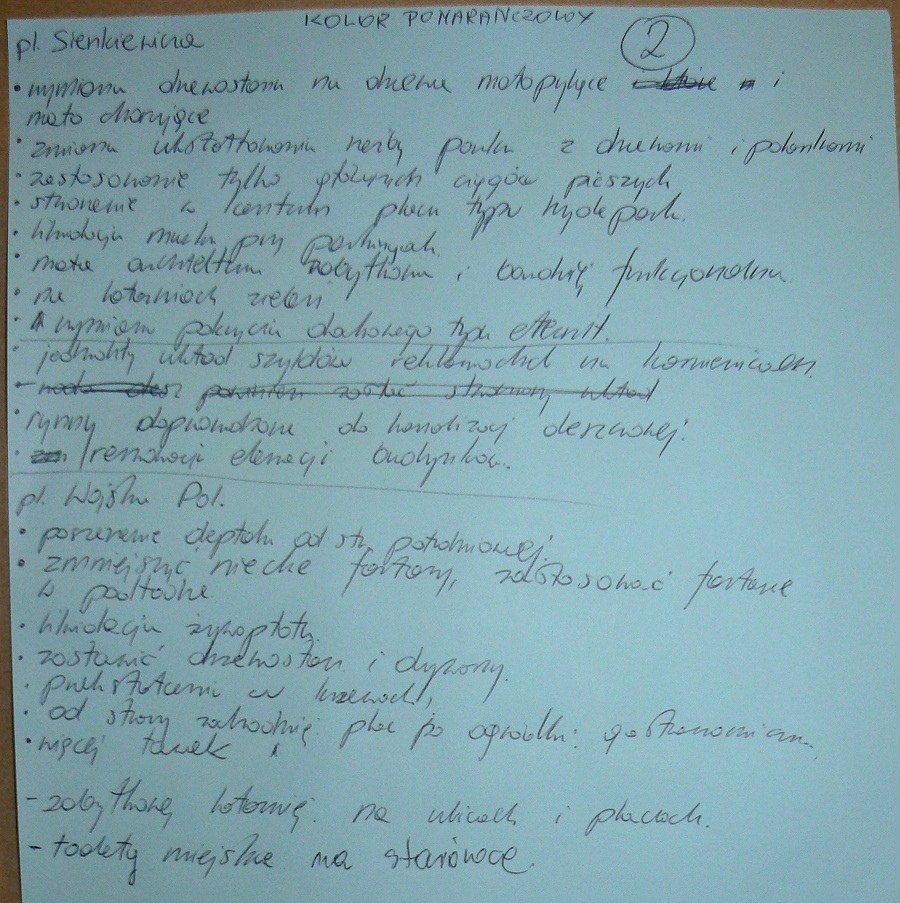 KOLOR POMARAŃCZOWY
2
pl. Sienkiewicza
• wymiana drzewostanu na drzewa małopylące i
mało chorujące
• zmiana ukształtowania rzeźby parku z drzewami i polankami
• zastosowanie tylko głównych ciągów pieszych
• stworzenie w centrum placu typu hyde park.
• likwidacja murku przy parkingach.
• mała architektura zabytkowa i bardziej funkcjonalna.
• na latarniach zieleń
• wymiana pokrycia dachowego typu eternit.
• jednolity układ szyldów reklamowych na kamienicach.
• powinien zostać stworzony układ
• rynny doprowadzone do kanalizacji deszczowej.
• renowacja elewacji budynków.
pl. Wojska Pol.
• poszerzenie deptaku od str. południowej.
• zmniejszyć nieckę fontanny, zastosować fontannę
w podłodze
• likwidacja żywopłotu.
• zostawić drzewostan i dywany.
• przekształcenia w krzewach,
• od strony zachodniej plac po ogródki gastronomiczne.
• więcej ławek
- zabytkowej latarniej. na ulicach i placach.
- toalety miejskie na starówce.